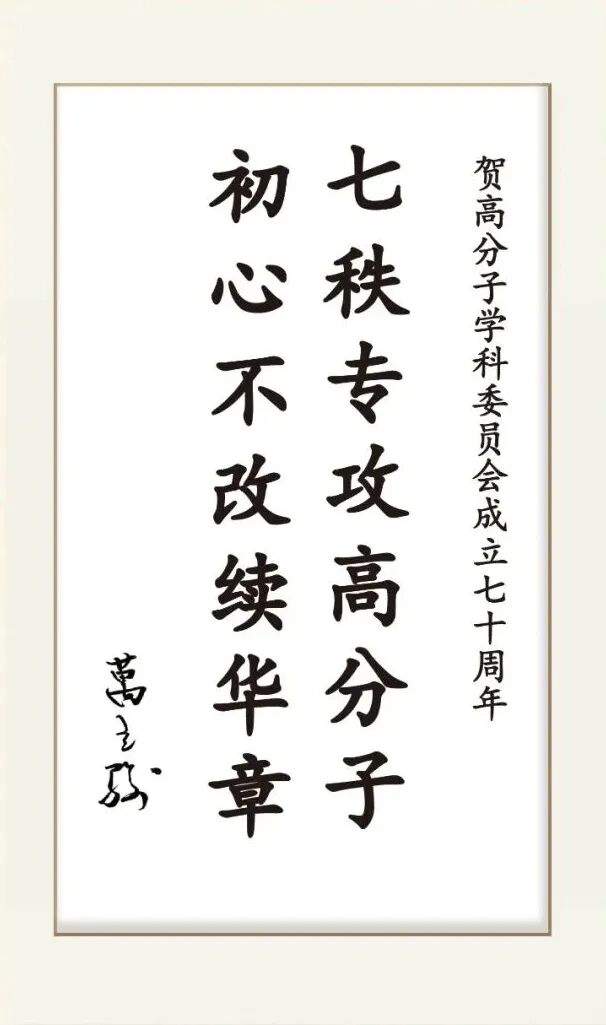 贺高分子学科委员会成立七十周年
七秩专攻高分子
初心不改续华章
萬立骏